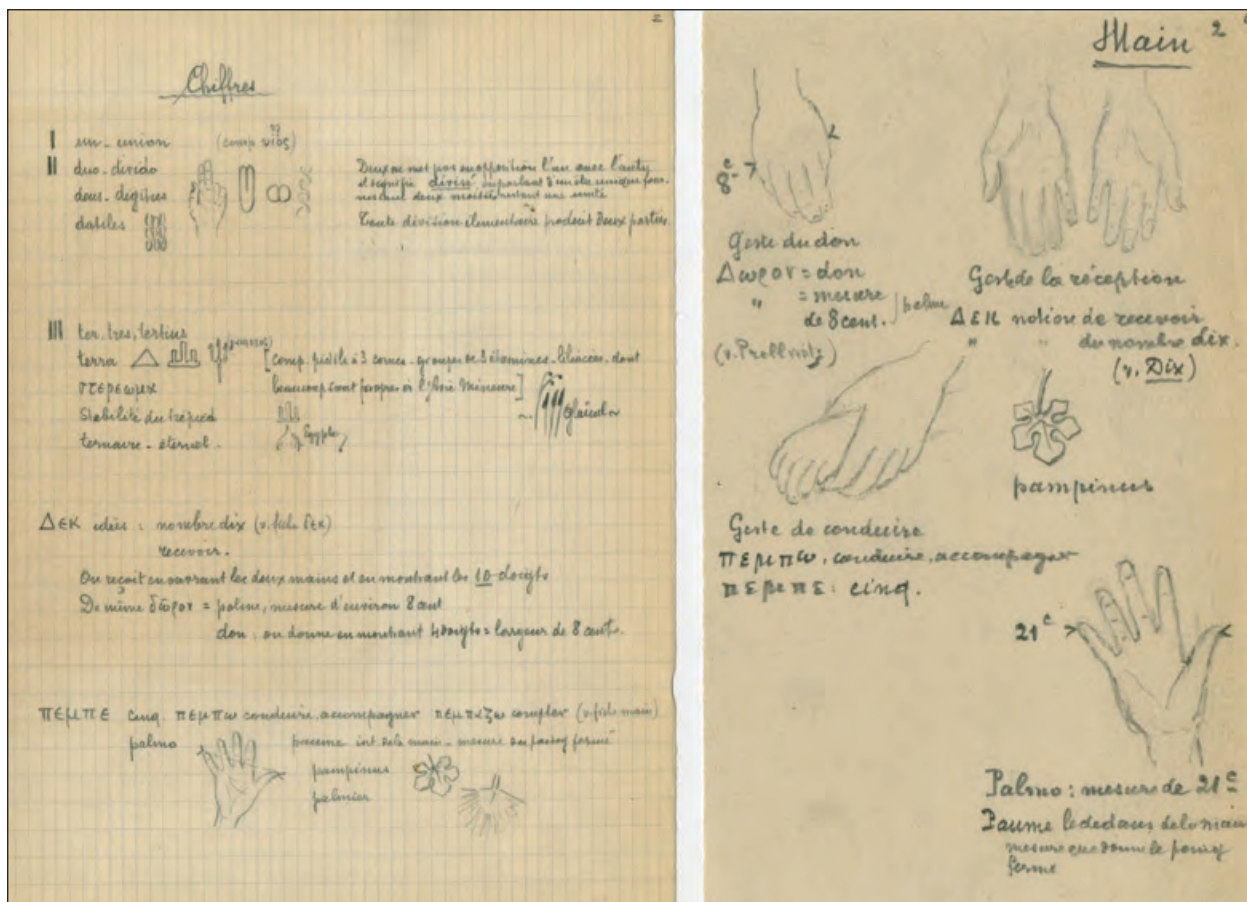 2
Chiffres
I un-union (comp. υἱός)
II duo-divido
deux-dégitus
datiles
Deux ne met pas en opposition l'un avec l'autre
il signifie divisé
mesurant deux moitiés restant une unité
Toute division élementaire produit Deux parties
III ter, tres, tertius
terra [comp. pistile à 3 cornes - groupes de 3 étamines - liliacées, dont
στερεωμα beaucoup sont propres à l'Asie Mineure]
Stabilité du trépied glaïeul
ternaire - éternel. Egypte
ΔΕΚ idées : nombre dix (v. δεκ)
recevoir.
On reçoit en ouvrant les deux mains et en montrant les 10 doigts
De même δῶρον = palme, mesure d'environ 8 cent
don : on donne en montrant 4 doigts = largeur de 8 cent.
πεμπε cinq. πεμπω conduire, accompagner πεμπαζω compter (v. main)
palmo paume int. de la main - mesure du poing fermé
pampinus
palmier
Main 2
8 c
Geste du don
Δωρον = don
" = mesure
de 8 cent.
(v. Prellwitz)
Geste de la réception
ΔΕΚ notion de recevoir
" " du nombre dix.
(v. Dix)
pampinus
Geste de conduire
πεμπω, conduire, accompagner
πεμπε : cinq.
21 c
Palmo : mesure de 21 c
Paume le dedans de la main
mesure que donne le poing
fermé